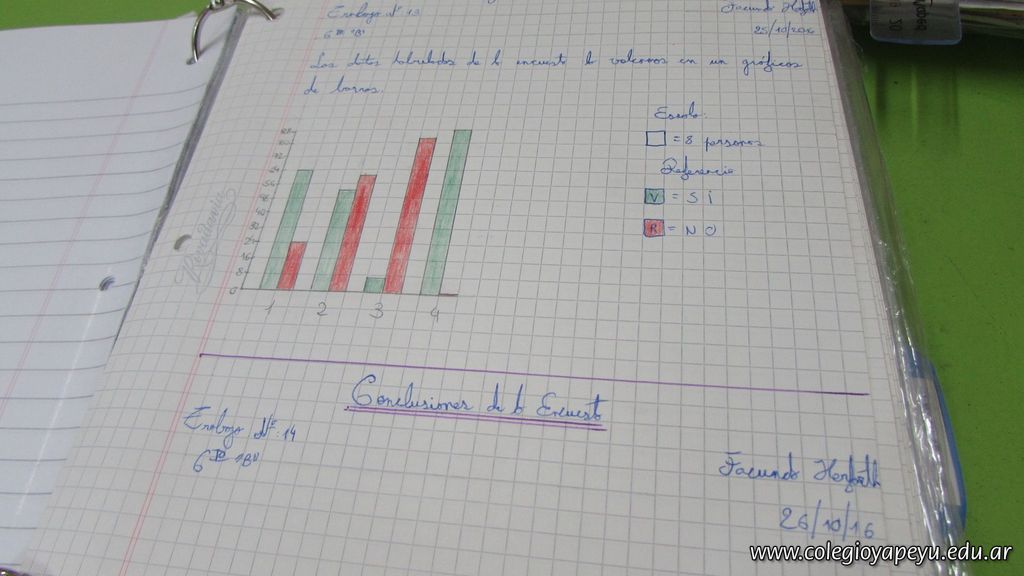 Trabajo Nº 13
Facundo
6to "B"
25/10/2016
Los datos tabulados de la encuesta lo volcamos en un gráficos
de barras.
Escala:
= 8 personas
Referencia
V = SI
R = NO
88
80
72
64
56
48
40
32
24
16
8
0
1 2 3 4
Rivadavia
Conclusiones de la Encuesta
Trabajo Nº: 14
6to "B"
Facundo
26/10/16
www.colegioyapeyu.edu.ar